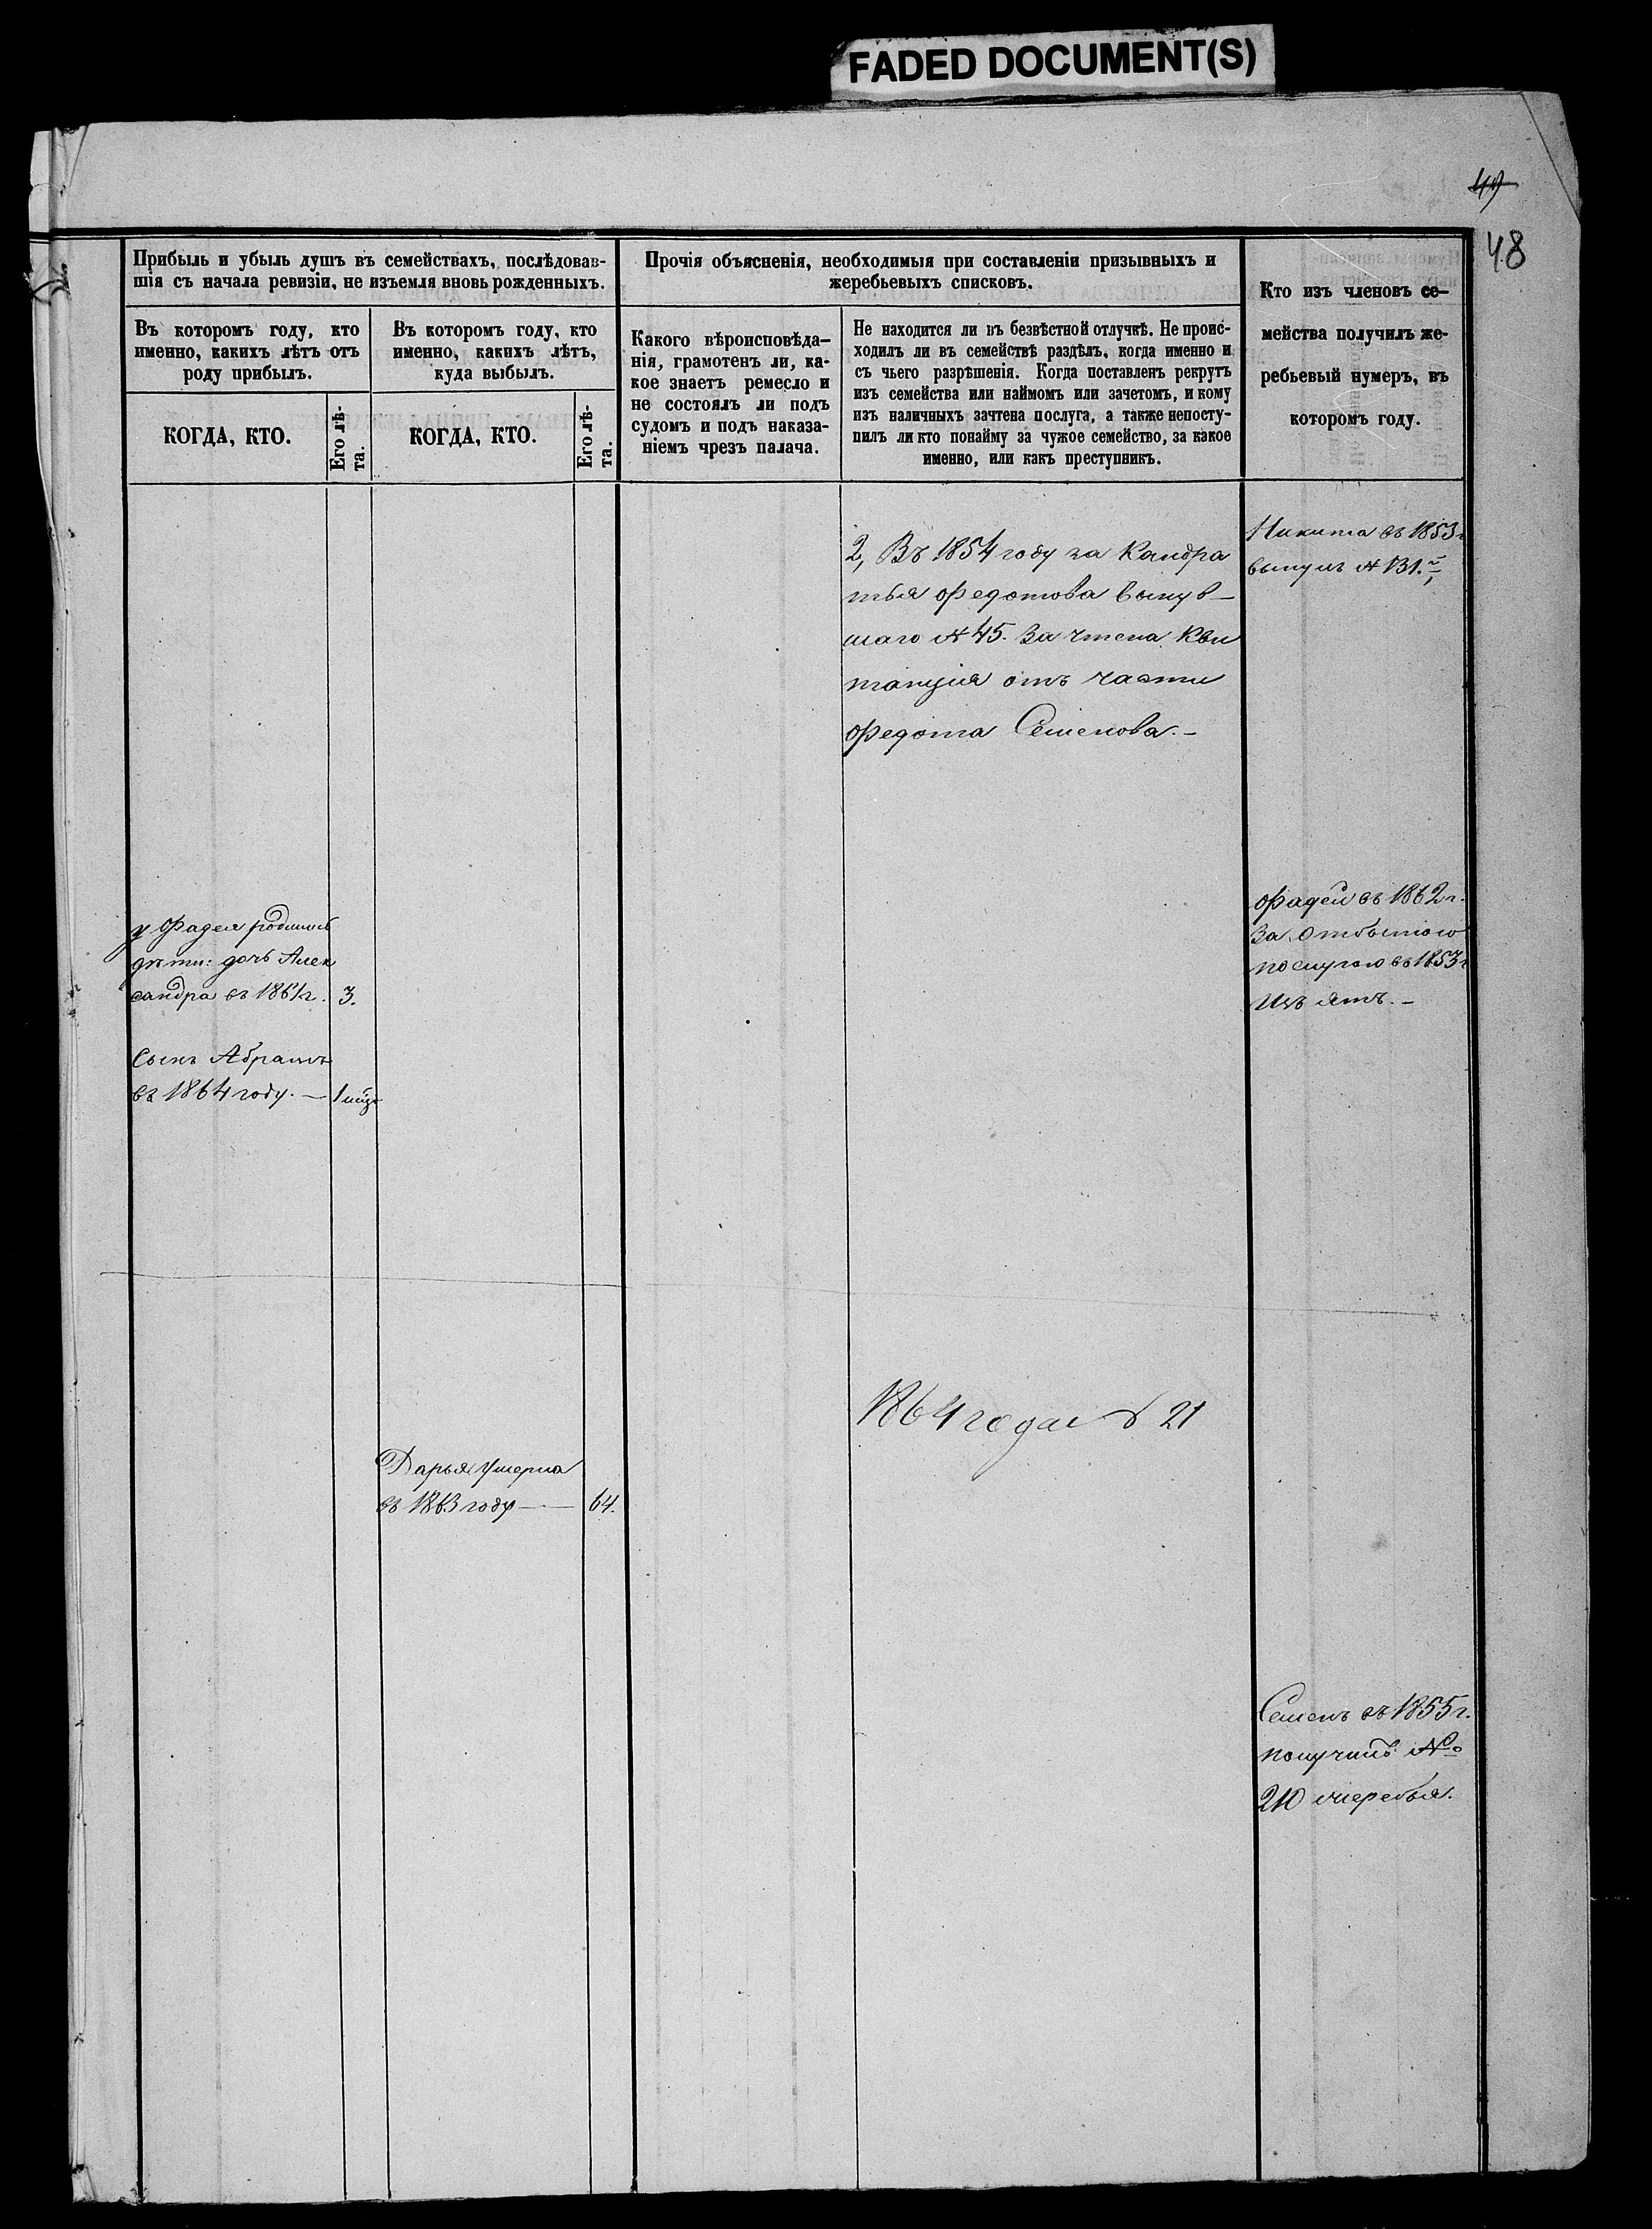 FADED DOCUMENT(S)
49
48
Прибыль и убыль душъ въ семействахъ, послѣдовав-
шія съ начала ревизіи, не изъемля вновь рожденныхъ.
Въ которомъ году, кто
именно, какихъ лѣтъ отъ
роду прибылъ.
КОГДА, КТО.
Его лѣ-
та.
Въ которомъ году, кто
именно, какихъ лѣтъ,
куда выбылъ.
КОГДА, КТО.
Его лѣ-
та.
Прочія объясненія, необходимыя при составленіи призывныхъ и
жеребьевыхъ списковъ.
Какого вѣроисповѣда-
нія, грамотенъ ли, ка-
кое знаетъ ремесло и
не состоялъ ли подъ
судомъ и подъ наказа-
ніемъ чрезъ палача.
Не находится ли въ безвѣстной отлучкѣ. Не проис-
ходилъ ли въ семействѣ раздѣлъ, когда именно и
съ чьего разрѣшенія. Когда поставленъ рекрутъ
изъ семейства или наймомъ или зачетомъ, и кому
изъ наличныхъ зачтена послуга, а также непосту-
пилъ ли кто понайму за чужое семейство, за какое
именно, или какъ преступникъ.
Кто изъ членовъ се-
мейства получилъ же-
ребьевый нумеръ, въ
которомъ году.
2, Въ 1854 году за Кандра
тья Федотова вынув-
шаго № 45. За чтена Кви
танція отъ части
Федота Семенова.-
Никита въ 1853 г
вынулъ № 131.й,
у Фадея родились
дѣти: дочь Алек
сандра въ 1861 г. 3.
Сынъ Абрамъ
въ 1864 году. —
Фадей въ 1862 г.
За отбытою
послугою въ 1853 г
Изъятъ.-
1864 года № 21
Дарья умерла
въ 1863 году — 64.
Семенъ въ 1855 г.
получилъ №
210 жеребья.